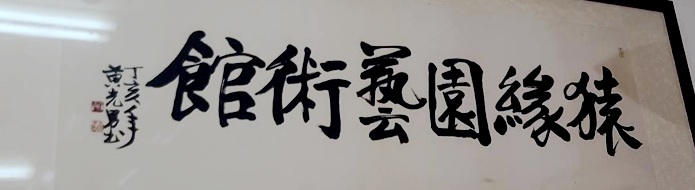 猿緣園藝術館
丁亥年
黃光男